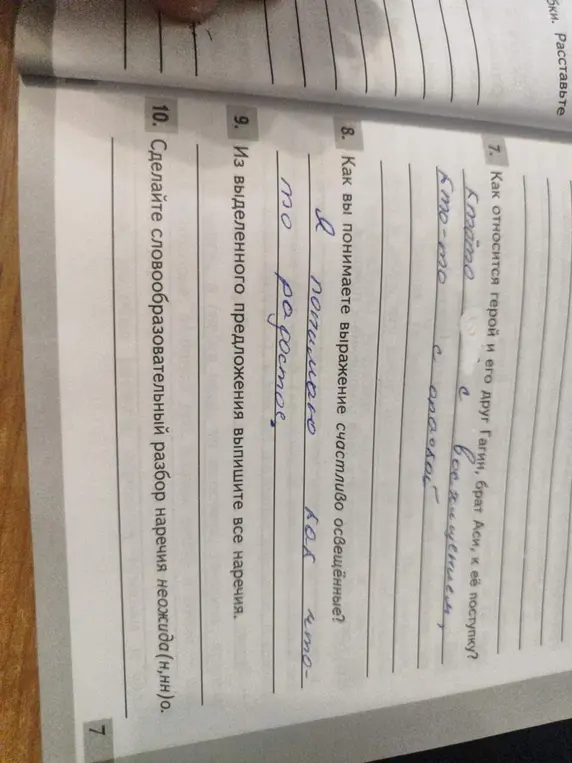 бки. Расставьте
7. Как относится герой и его друг Гагин, брат Аси, к её поступку?
с восхищением,
кто-то с опаской
8. Как вы понимаете выражение счастливо освещённые?
Я понимаю как что-
то радостое.
9. Из выделенного предложения выпишите все наречия.
10. Сделайте словообразовательный разбор наречия неожида(н,нн)о.
7